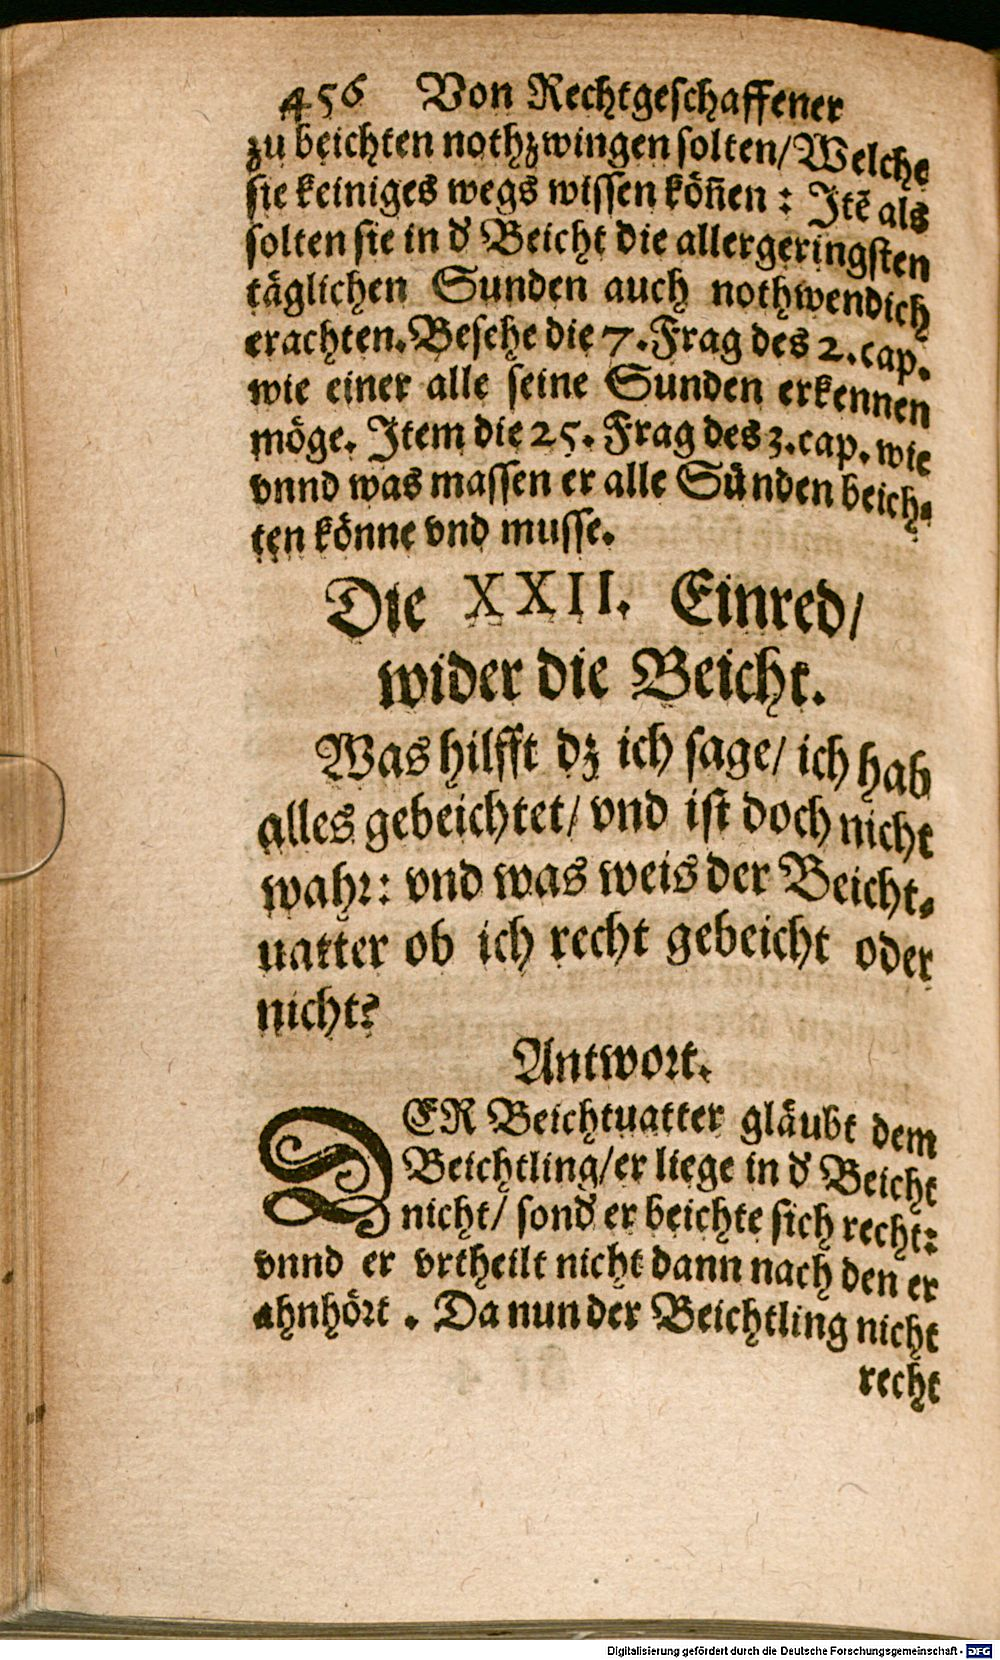 456 Von Rechtgeschaffener
zu beichten nothzwingen solten/ Welche
sie keiniges wegs wissen köñen : Itẽ als
solten sie in d' Beicht die allergeringsten
täglichen Sunden auch nothwendich
erachten. Besehe die 7. Frag des 2. cap.
wie einer alle seine Sunden erkennen
möge. Item die 25. Frag des 3. cap. wie
vnnd was massen er alle Sünden beich-
ten könne vnd musse.
Die XXII. Einred/
wider die Beicht.
Was hilfft dz ich sage/ ich hab
alles gebeichtet/ vnd ist doch nicht
wahr: vnd was weis der Beicht-
uatter ob ich recht gebeicht oder
nicht?
Antwort.
DER Beichtuatter gläubt dem
Beichtling/ er liege in d' Beicht
nicht/ sond' er beichte sich recht:
vnnd er vrtheilt nicht dann nach den er
ahnhört . Da nun der Beichtling nicht
recht
Digitalisierung gefördert durch die Deutsche Forschungsgemeinschaft - DFG